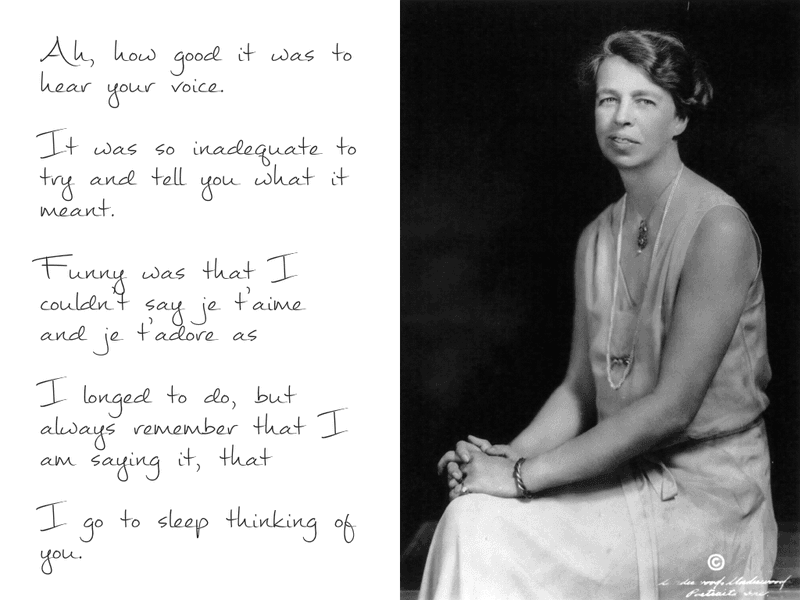 Ah, how good it was to
hear your voice.
It was so inadequate to
try and tell you what it
meant.
Funny was that I
couldn't say je t'aime
and je t'adore as
I longed to do, but
always remember that I
am saying it, that
I go to sleep thinking of
you.
©
Underwood & Underwood
Portraits Inc.